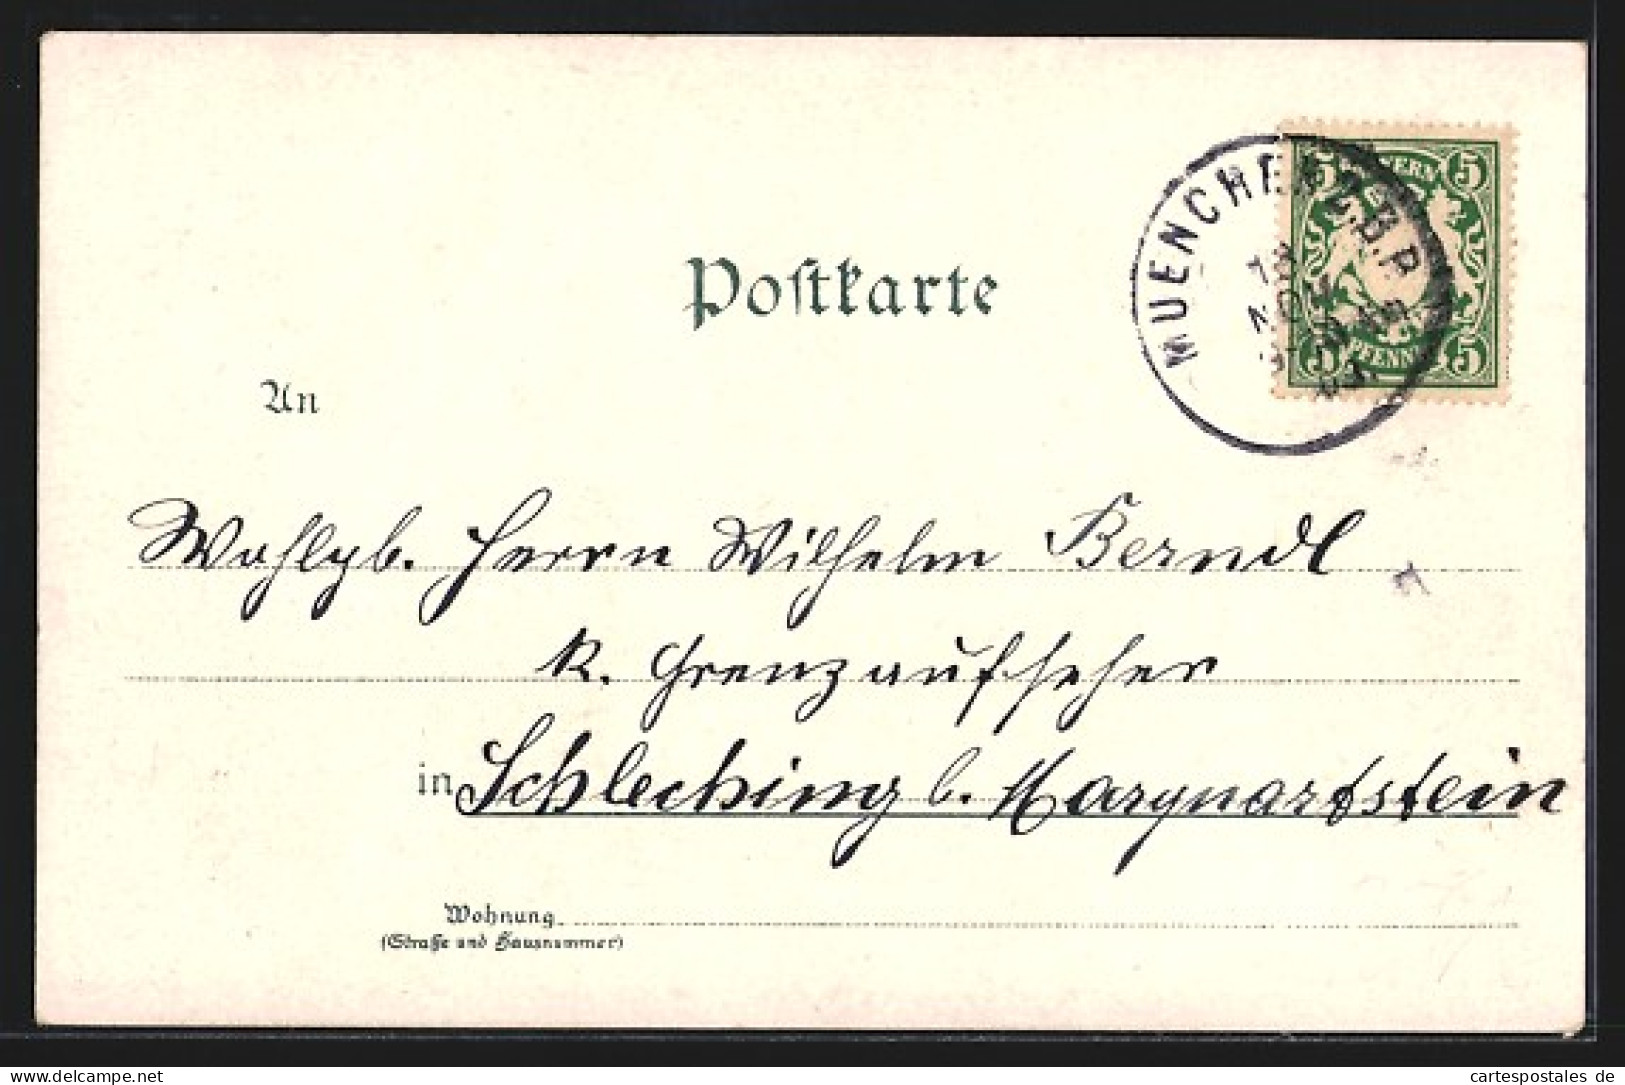 Postkarte
MUENCHEN 2. B.P.
NOV
03.
5 BAYERN 5
5 PFENNIG 5
An
Wohlgb. Herrn Wilhelm Berndl
k. Grenzaufseher
in Schleching b. Marquartstein
Wohnung
(Straße und Hausnummer)
cartespostales de